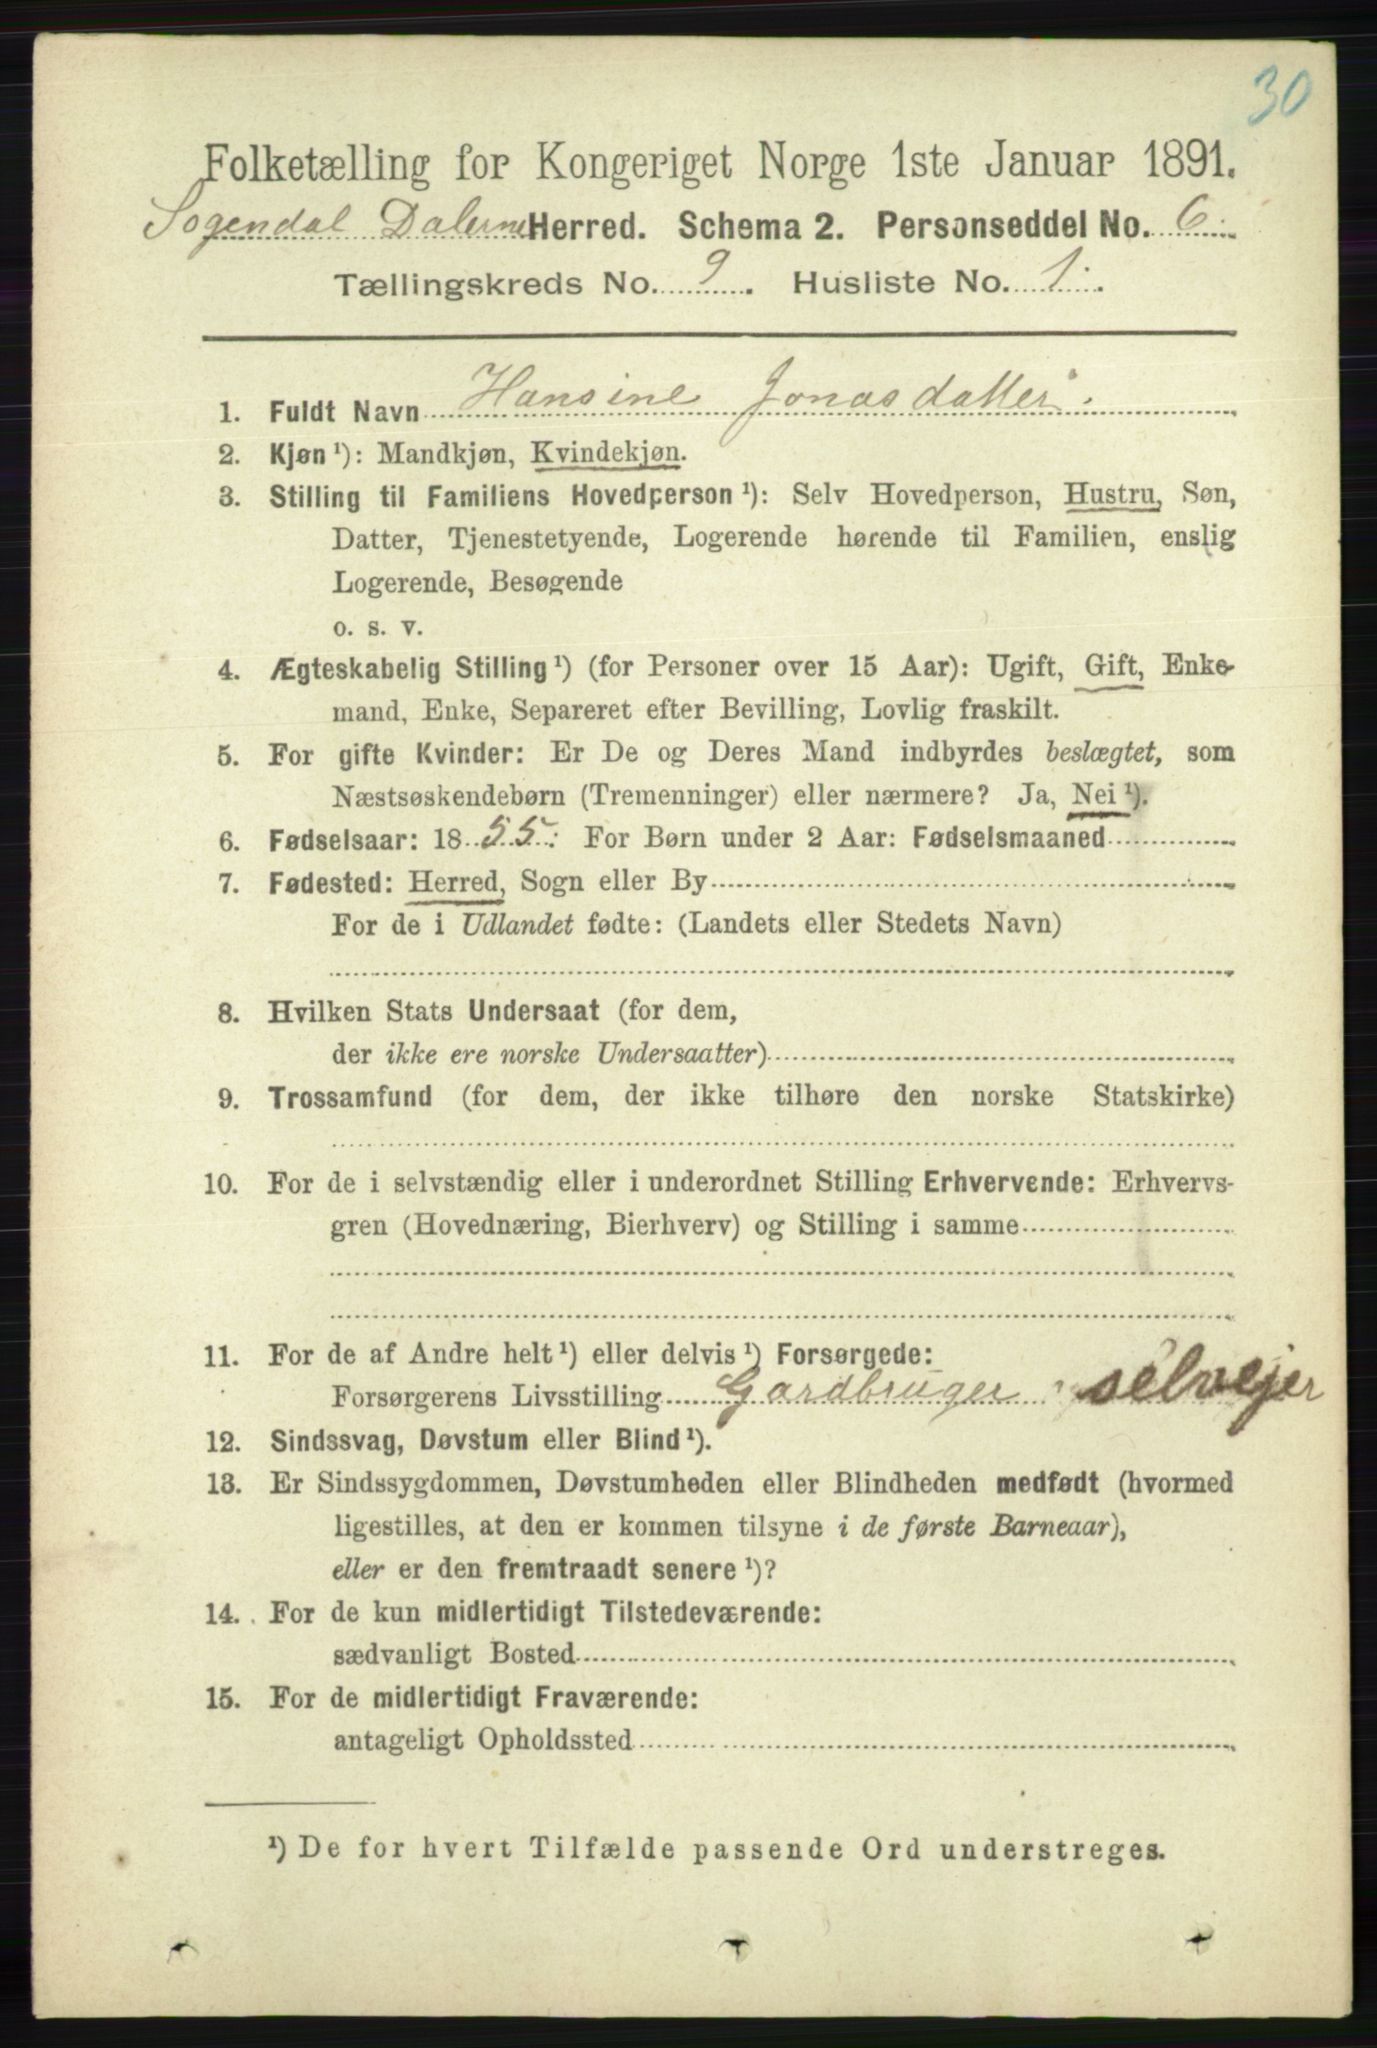 30
Folketælling for Kongeriget Norge 1ste Januar 1891.
Sogendal Dalerne Herred. Schema 2. Personseddel No. 6.
Tællingskreds No. 9. Husliste No. 1.
1. Fuldt Navn Hansine Jonasdatter.
2. Kjøn ¹): Mandkjøn, Kvindekjøn.
3. Stilling til Familiens Hovedperson ¹): Selv Hovedperson, Hustru, Søn,
Datter, Tjenestetyende, Logerende hørende til Familien, enslig
Logerende, Besøgende
o. s. v.
4. Ægteskabelig Stilling ¹) (for Personer over 15 Aar): Ugift, Gift, Enke-
mand, Enke, Separeret efter Bevilling, Lovlig fraskilt.
5. For gifte Kvinder: Er De og Deres Mand indbyrdes beslægtet, som
Næstsøskendebørn (Tremenninger) eller nærmere? Ja, Nei ¹).
6. Fødselsaar: 1855. For Børn under 2 Aar: Fødselsmaaned
7. Fødested: Herred, Sogn eller By
For de i Udlandet fødte: (Landets eller Stedets Navn)
8. Hvilken Stats Undersaat (for dem,
der ikke ere norske Undersaatter)
9. Trossamfund (for dem, der ikke tilhøre den norske Statskirke)
10. For de i selvstændig eller i underordnet Stilling Erhvervende: Erhvervs-
gren (Hovednæring, Bierhverv) og Stilling i samme
11. For de af Andre helt ¹) eller delvis ¹) Forsørgede:
Forsørgerens Livsstilling Gardbruger selvejer
12. Sindssvag, Døvstum eller Blind ¹).
13. Er Sindssygdommen, Døvstumheden eller Blindheden medfødt (hvormed
ligestilles, at den er kommen tilsyne i de første Barneaar),
eller er den fremtraadt senere ¹)?
14. For de kun midlertidigt Tilstedeværende:
sædvanligt Bosted
15. For de midlertidigt Fraværende:
antageligt Opholdssted
¹) De for hvert Tilfælde passende Ord understreges.